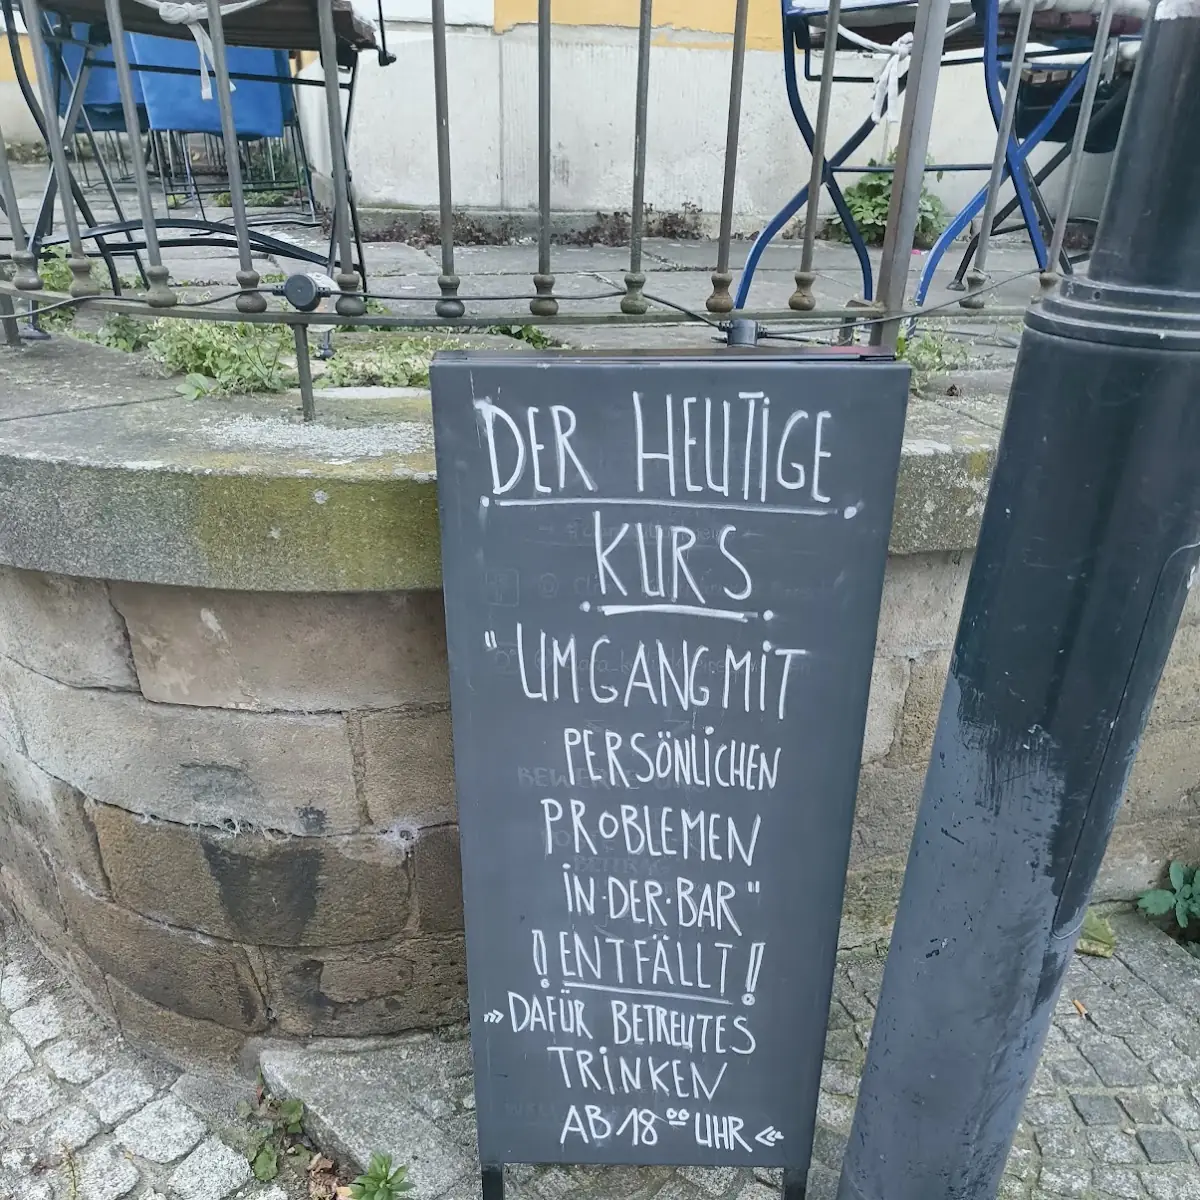 DER HEUTIGE
KURS
"UMGANG MIT
PERSÖNLICHEN
PROBLEMEN
IN·DER·BAR"
! ENTFÄLLT !
» DAFÜR BETREUTES
TRINKEN
AB 18⁰⁰ UHR «